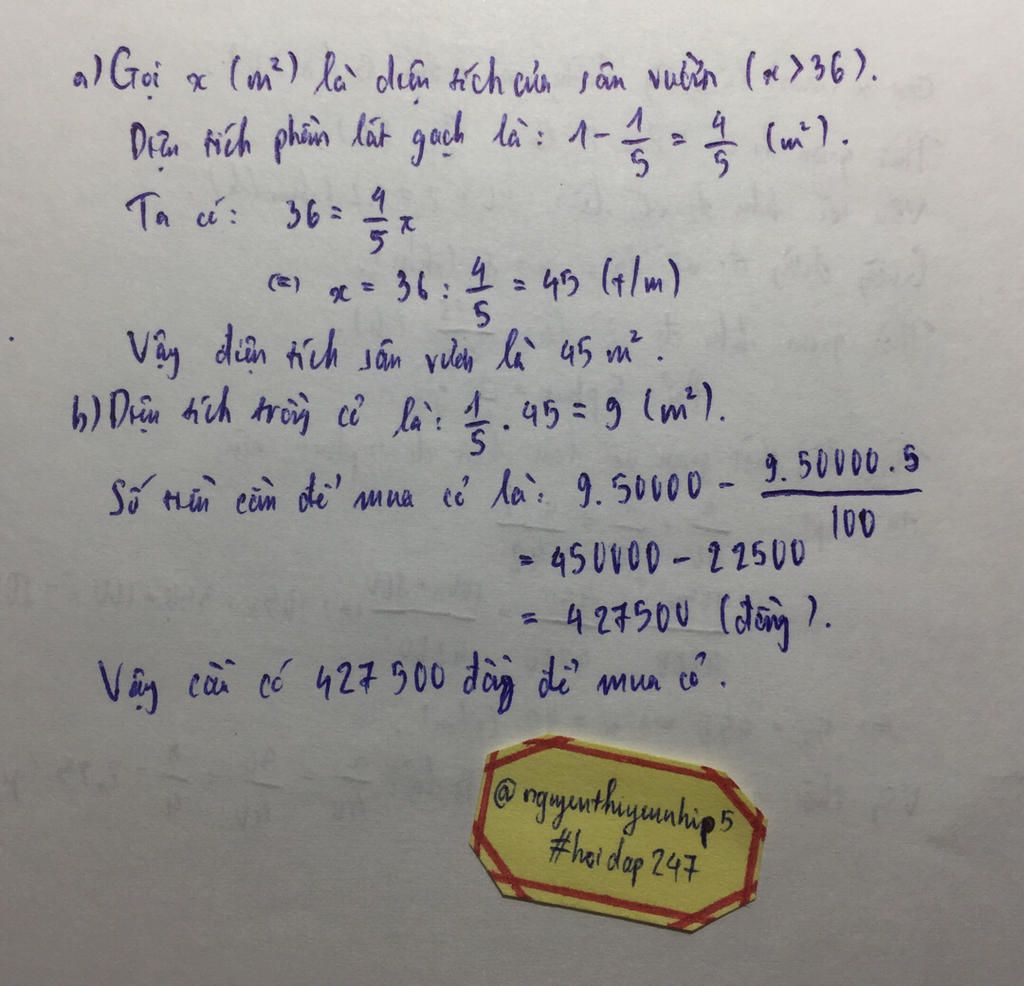 a) Gọi x (m²) là diện tích của sân vườn (x > 36).
Diện tích phần lát gạch là: 1 - 1/5 = 4/5 (m²).
Ta có: 36 = 4/5 x
(=) x = 36 : 4/5 = 45 (t/m)
Vậy diện tích sân vườn là 45 m².
b) Diện tích trồng cỏ là: 1/5 . 45 = 9 (m²).
Số tiền cần để mua cỏ là: 9.50000 - 9.50000.5/100
= 450000 - 22500
= 427500 (đồng).
Vậy cần có 427500 đồng để mua cỏ.
@nguyenthiyennhip5
#hoidap247